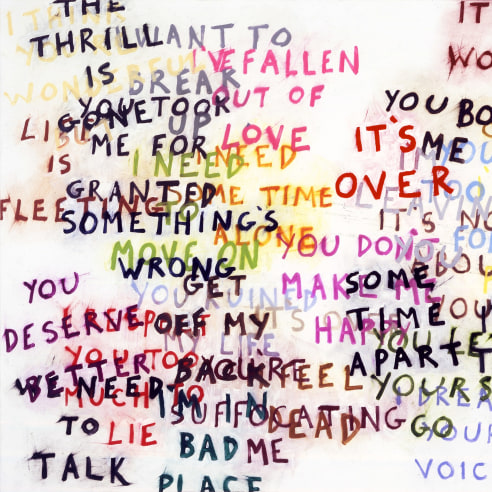 THE
THRILL
IS
GONE
I THINK
WONDERFUL
BUT
WANT TO
BREAK
UP
I'VE FALLEN
OUT OF
LOVE
YOU TOOK
ME FOR
GRANTED
IS
FLEETING
I NEED
TO
MOVE ON
I NEED
SOME TIME
ALONE
SOMETHING'S
WRONG
IT
WO
YOU BO
ME
IT'S
OVER
LEAVIN
YOU
IT'S NO
YOU DON'T
MAKE ME
HAPPY
YOU RUINED
MY LIFE
YOU
DESERVE
BETTER
GET
OFF MY
BACK
SOME
TIME
APART
YOU
MUCH TO
LIE
WE NEED
TO
TALK
YOU'RE
SUFFOCATING
ME
I FEEL
DEAD
I'M IN
BAD
PLACE
YOURS
GO
YOUR
VOIC